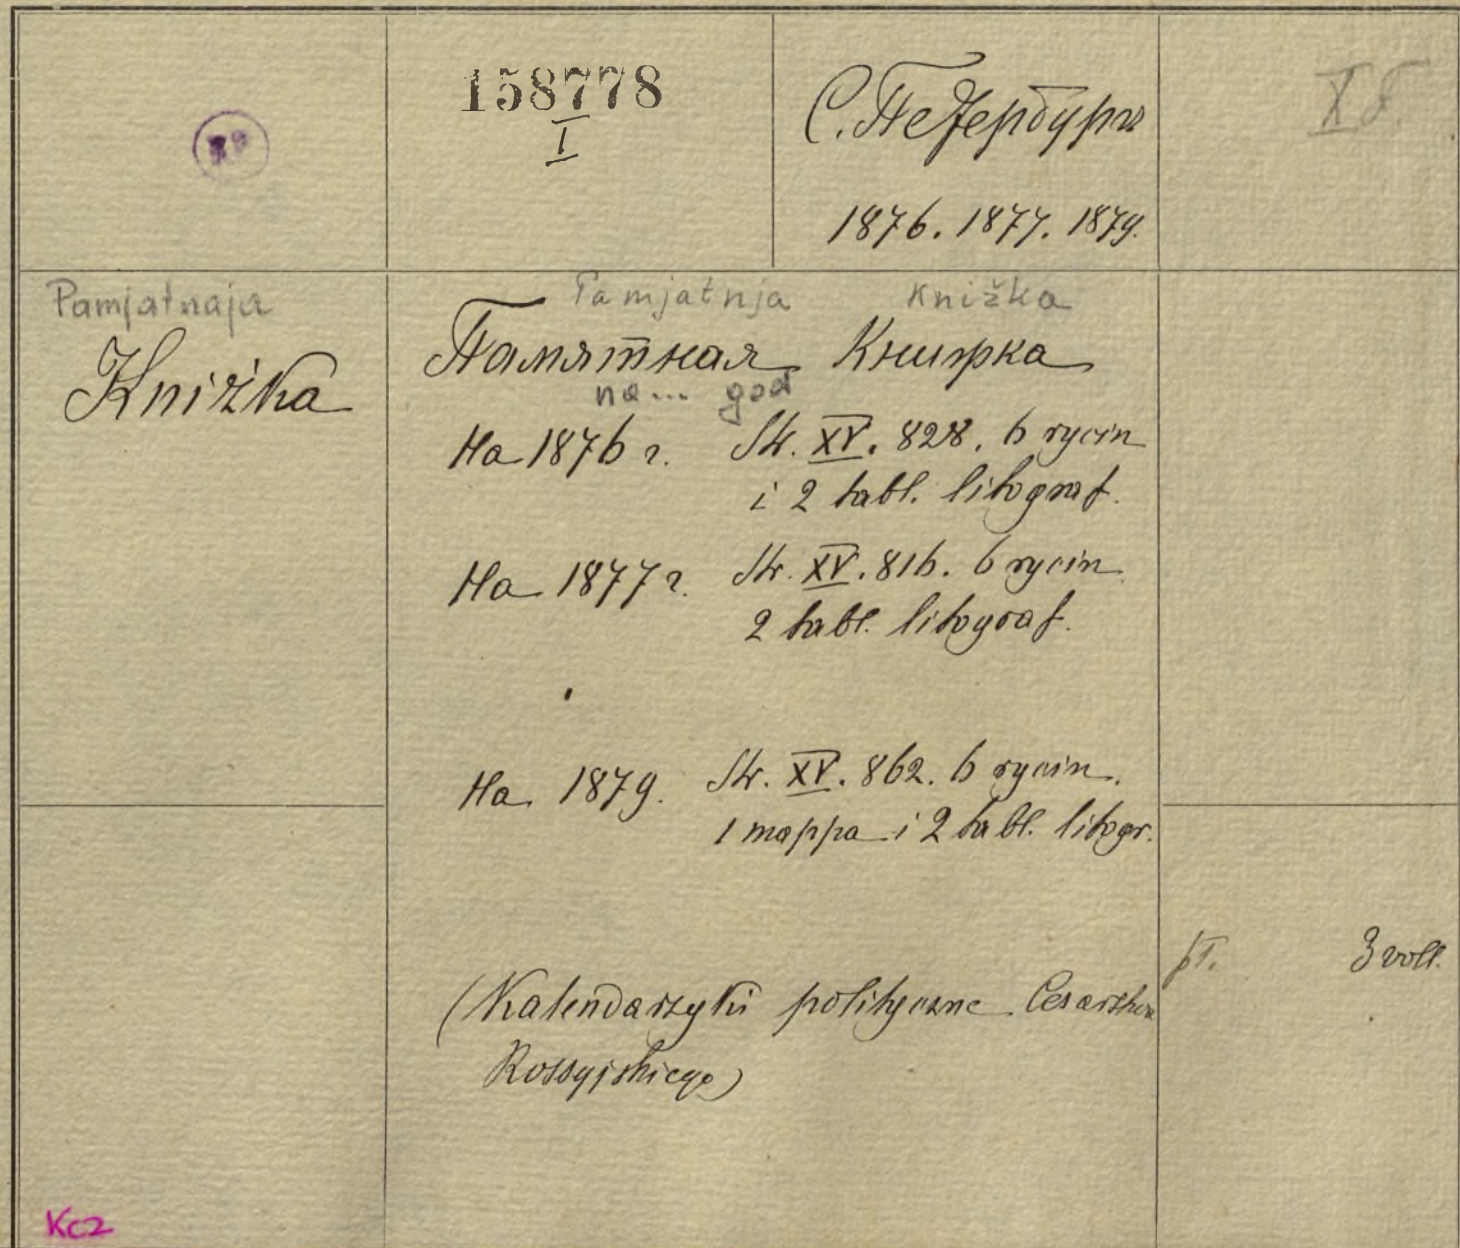 158778
I
С. Петербургъ
1876. 1877. 1879.
X
Pamjatnaja
Knižka
Pamjatnja Knižka
Памятная Книжка
na... god
На 1876 г. Str. XV. 828. 6 rycin
i 2 tabl. litograf.
На 1877 г. Str. XV. 816. 6 rycin
2 tabl. litograf.
На 1879. Str. XV. 862. 6 rycin.
1 mappa i 2 tabl. litogr.
3 voll.
(Kalendarzyki polityczne Cesarstwa
Rossyjskiego)
Kc2